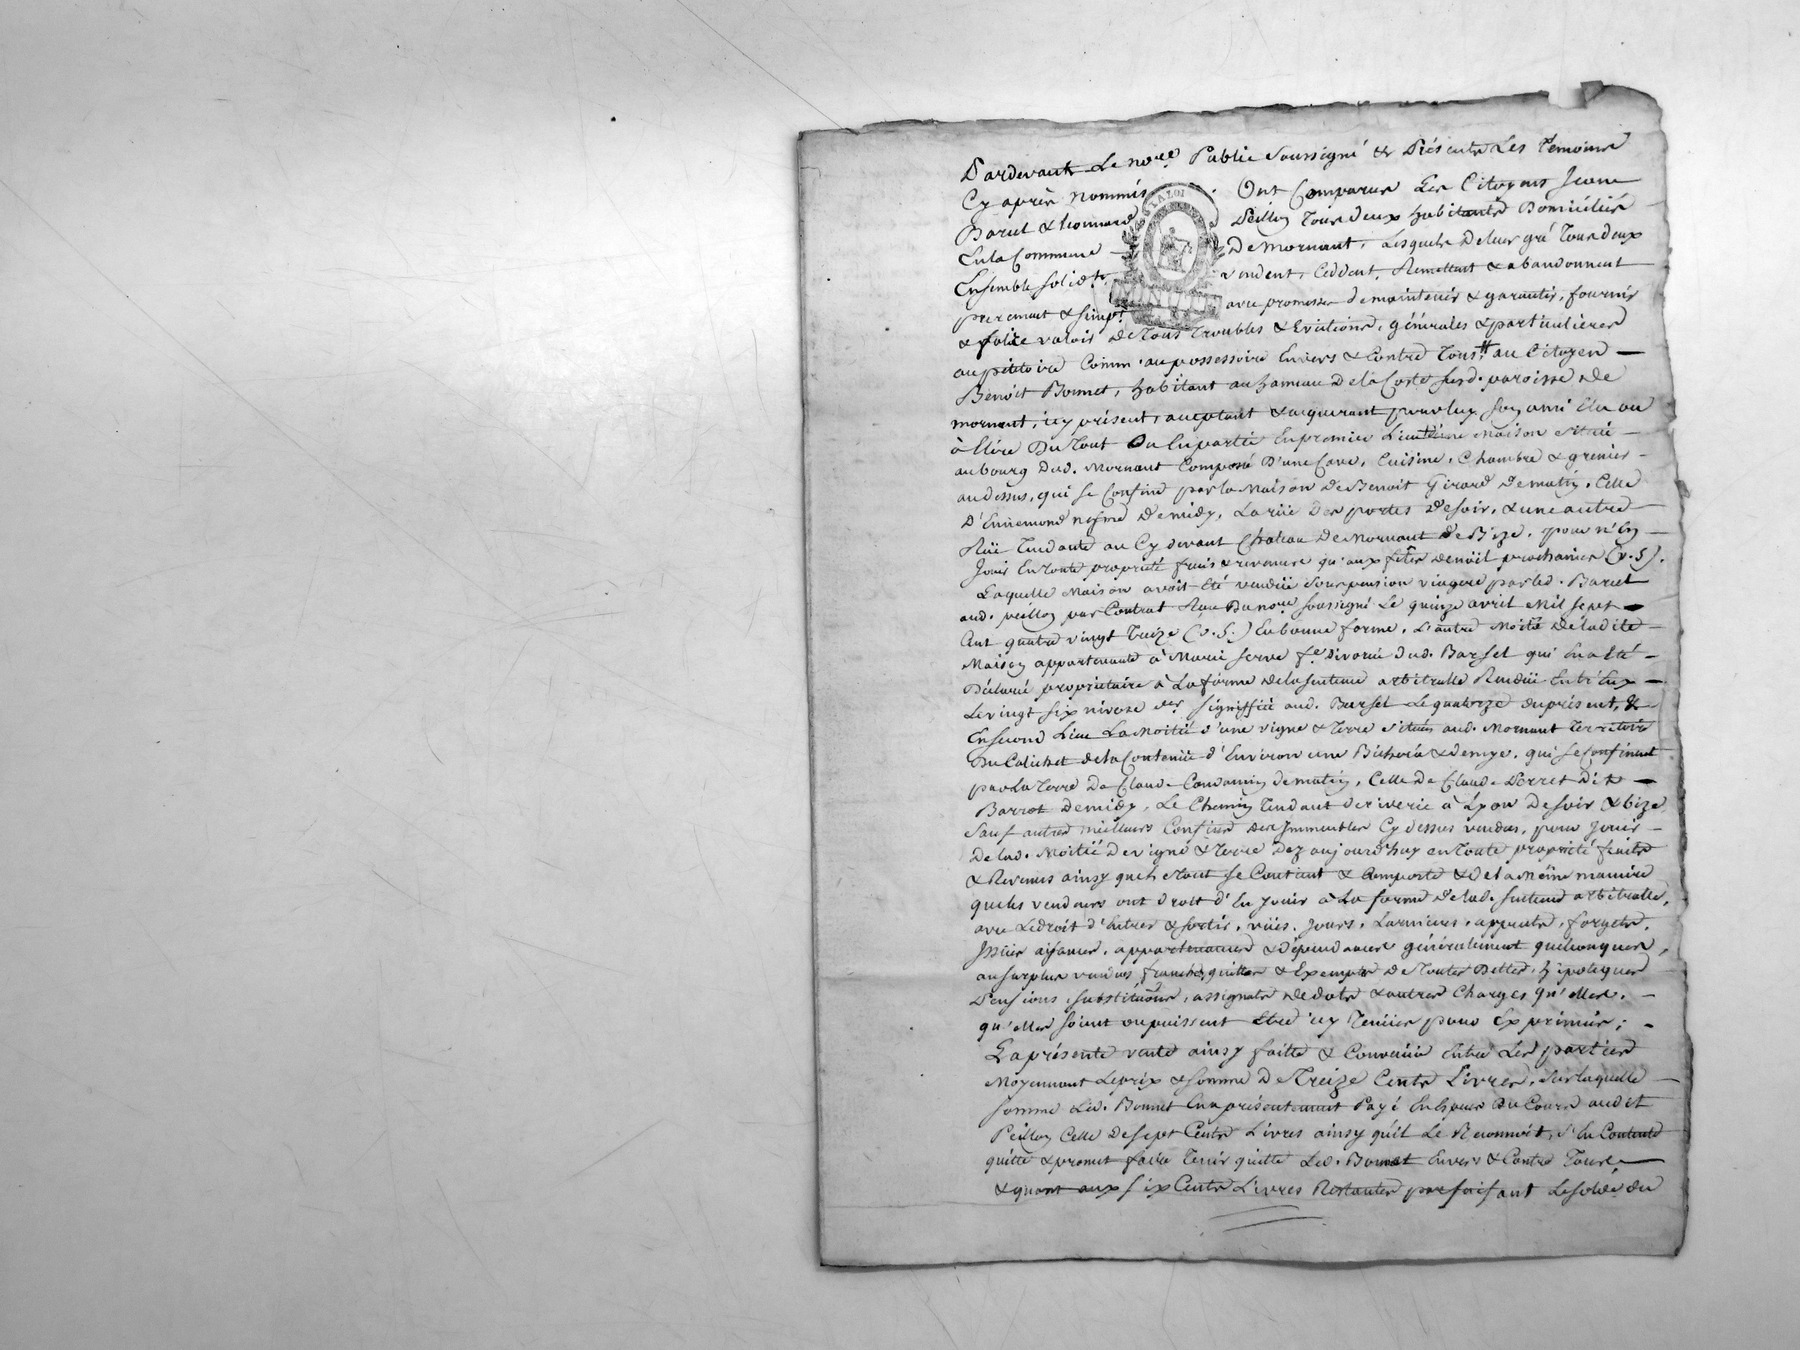 Pardevant Le no.re Public soussigné & Présents Les Temoins
Cy après nommés Ont Comparus Les Citoyens Jean
Barel & Leonnard Peillon Tous deux habitants Domiciliés
En la Commune De Mornant, Lesquels de leur gré Tous deux
Ensemble solid.t vendent, Ceddent, Remettent & abandonnent
purement & simpt avec promesse de maintenir & garantir, fournir
& faire valoir De Tous Troubles & Evictions, générales & particulieres
au pétitoire Comm' au possessoire Envers & Contre Tous, au Citoyen
Benoit Bonnet, habitant au hameau De la Coste susd. paroisse de
mornant, icy présent, acceptant & acquerant pour luy son ami Elu ou
à Elire Du Tout Ou En partie En premier Lieu une Maison située
au bourg dud. Mornant Composé D'une Cave, Cuisine, Chambre & grenier
au dessus, qui se Confine par la Maison de Benoit Girard De matin, Celle
D'Ennemond De midy, La rüe Des portes De soir, & une autre
Rüe Tendante au Cy devant Château De Mornant De Bize, pour n'En
Jouir En toute propriété fruis & revenus qu'aux fêtes de noël prochaines (v. S).
Laquelle Maison avoit Eté vendüe sous pension viagere par led. Barel
aud. peillon par Contrat Reçu Du no.re soussigné Le quinze avril Mil sept
Cent quatre vingt Treize (v. S.) En bonne forme, L'autre Moitié de ladite
Maison appartenante à Marie serve f.e Divorcée dud. Barsel qui En a Eté
Déclarée propriétaire à La forme de la sentence arbitralle Rendüe Entr'Eux
Le vingt six nivose der. signiffiée aud. Barsel Le quatorze du présent, &
En second Lieu La Moitié d'une vigne & Terre situées aud. Mornant Territoire
Du Calichet de la Contenüe d'Environ une Bicherée & demye, qui se Confinent
par La Terre De Claude Condamin de matin, Celle De Claude Perret dit
Barrot De midy, Le Chemin Tendant De riverie à Lyon De soir & bize
sauf autres meilleurs Confins Des Immeubles Cy dessus vendus, pour Jouir
De lad. Moitié De vigne & Terre Dez aujourd'huy en Toute propriété fruits
& Revenus ainsy que le tout se Contient & Comporte & De la Même maniere
que les vendeurs ont Droit d'En Jouir à La forme De lad. sentence arbitralle,
avec Le droit d'Entrer & sortir, vües, Jours, Larmiers, appents, forgets,
Issües aisances, appartenances & dépendances généralement quelconques,
au surplus vendus francs, quittes & Exempts De Toutes Dettes, hipoteques
Pensions substitüons, assignats de dots & autres Charges qu'Elles,
qu'Elles soient ou puissent Etre icy Tenües pour Exprimées;
La présente vente ainsy faitte & Convenüe Entre Les parties
Moyennant Le prix & somme De Treize Cents Livres, sur laquelle
somme Led. Bonnet En a présentement Payé En Especes Du Cours audit
Peillon Celle De sept Cents Livres ainsy qu'il Le Reconnoit, s'En Contente
quitte & promet faire Tenir quitte Led. Bonnet Envers & Contre Tous
& quant aux six Cents Livres Restantes parfaisant Le solde du